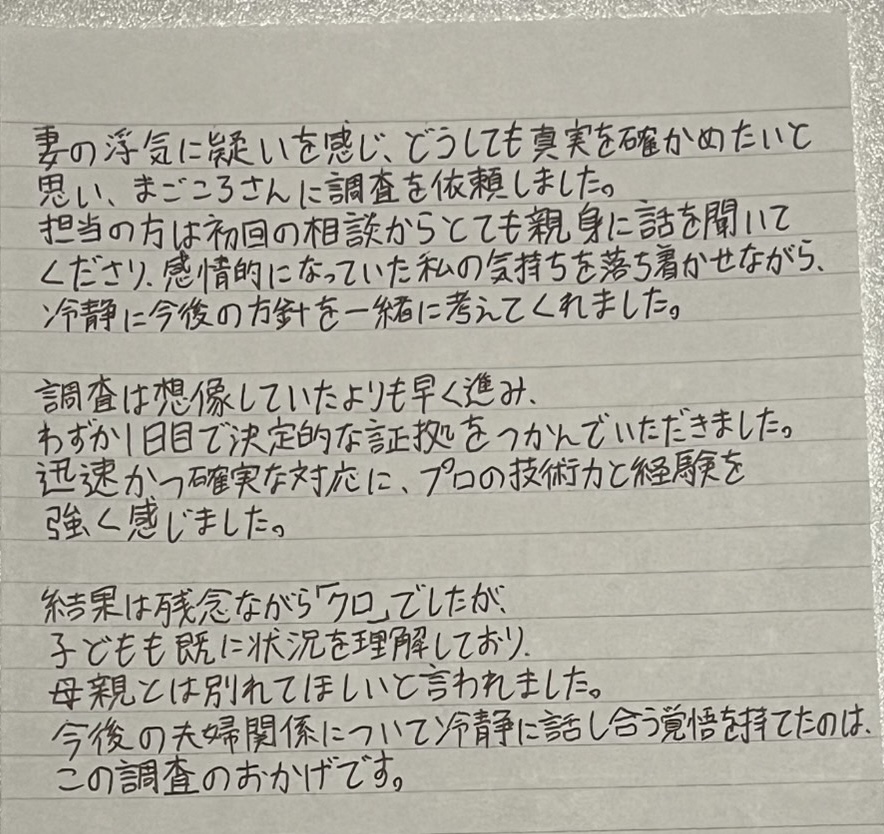 妻の浮気に疑いを感じ、どうしても真実を確かめたいと
思い、まごころさんに調査を依頼しました。
担当の方は初回の相談からとても親身に話を聞いて
くださり、感情的になっていた私の気持ちを落ち着かせながら、
冷静に今後の方針を一緒に考えてくれました。
調査は想像していたよりも早く進み、
わずか1日目で決定的な証拠をつかんでいただきました。
迅速かつ確実な対応に、プロの技術力と経験を
強く感じました。
結果は残念ながら「クロ」でしたが、
子どもも既に状況を理解しており、
母親とは別れてほしいと言われました。
今後の夫婦関係について冷静に話し合う覚悟を持てたのは、
この調査のおかげです。